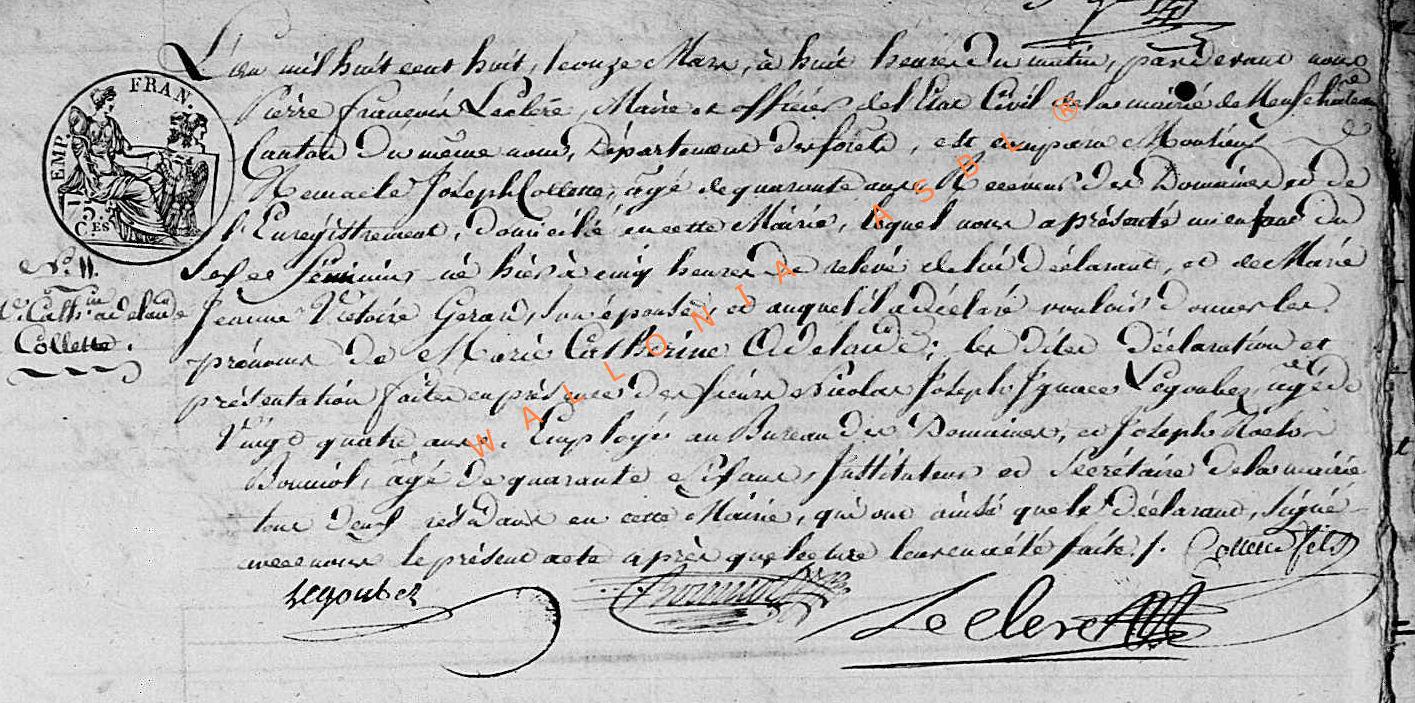 L'an mil huit cent huit, le onze Mars, à huit heures du matin, pardevant nous
Pierre François Leclerc, Maire et officier de l'Etat Civil de la mairie de Neufchateau
Canton du même nom, Département des forêts, est comparu Monsieur
Remacle Joseph Collette, âgé de quarante ans, Receveur des Domaines et de
l'Enregistrement, domicilié en cette Mairie, lequel nous a présenté un enfant du
Sexe féminin né hier à cinq heures de relevé de lui déclarant, et de Marie
Jeanne Victoire Gerard, son épouse, et auquel il a déclaré vouloir donner les
prénoms de Marie Catherine Adelaïde; les dites déclaration et
présentation faites en présence des sieurs Nicolas Joseph Ignace Legoubez, agé de
Vingt quatre ans, Employé au Bureau des Domaines, et Joseph
âgé de quarante Six ans, Instituteur et Secrétaire de la mairie
tous deux résidans en cette Mairie, qui ont ainsi que le déclarant, signé
avec nous le présent acte après que lecture leur en a été faite ./. Collette fils
Legoubez
Leclerc
EMP. FRAN.
75
C.ES
N.º 11.
Cath.ine adelaïde
Collette.
WALLONIA ASBL ®